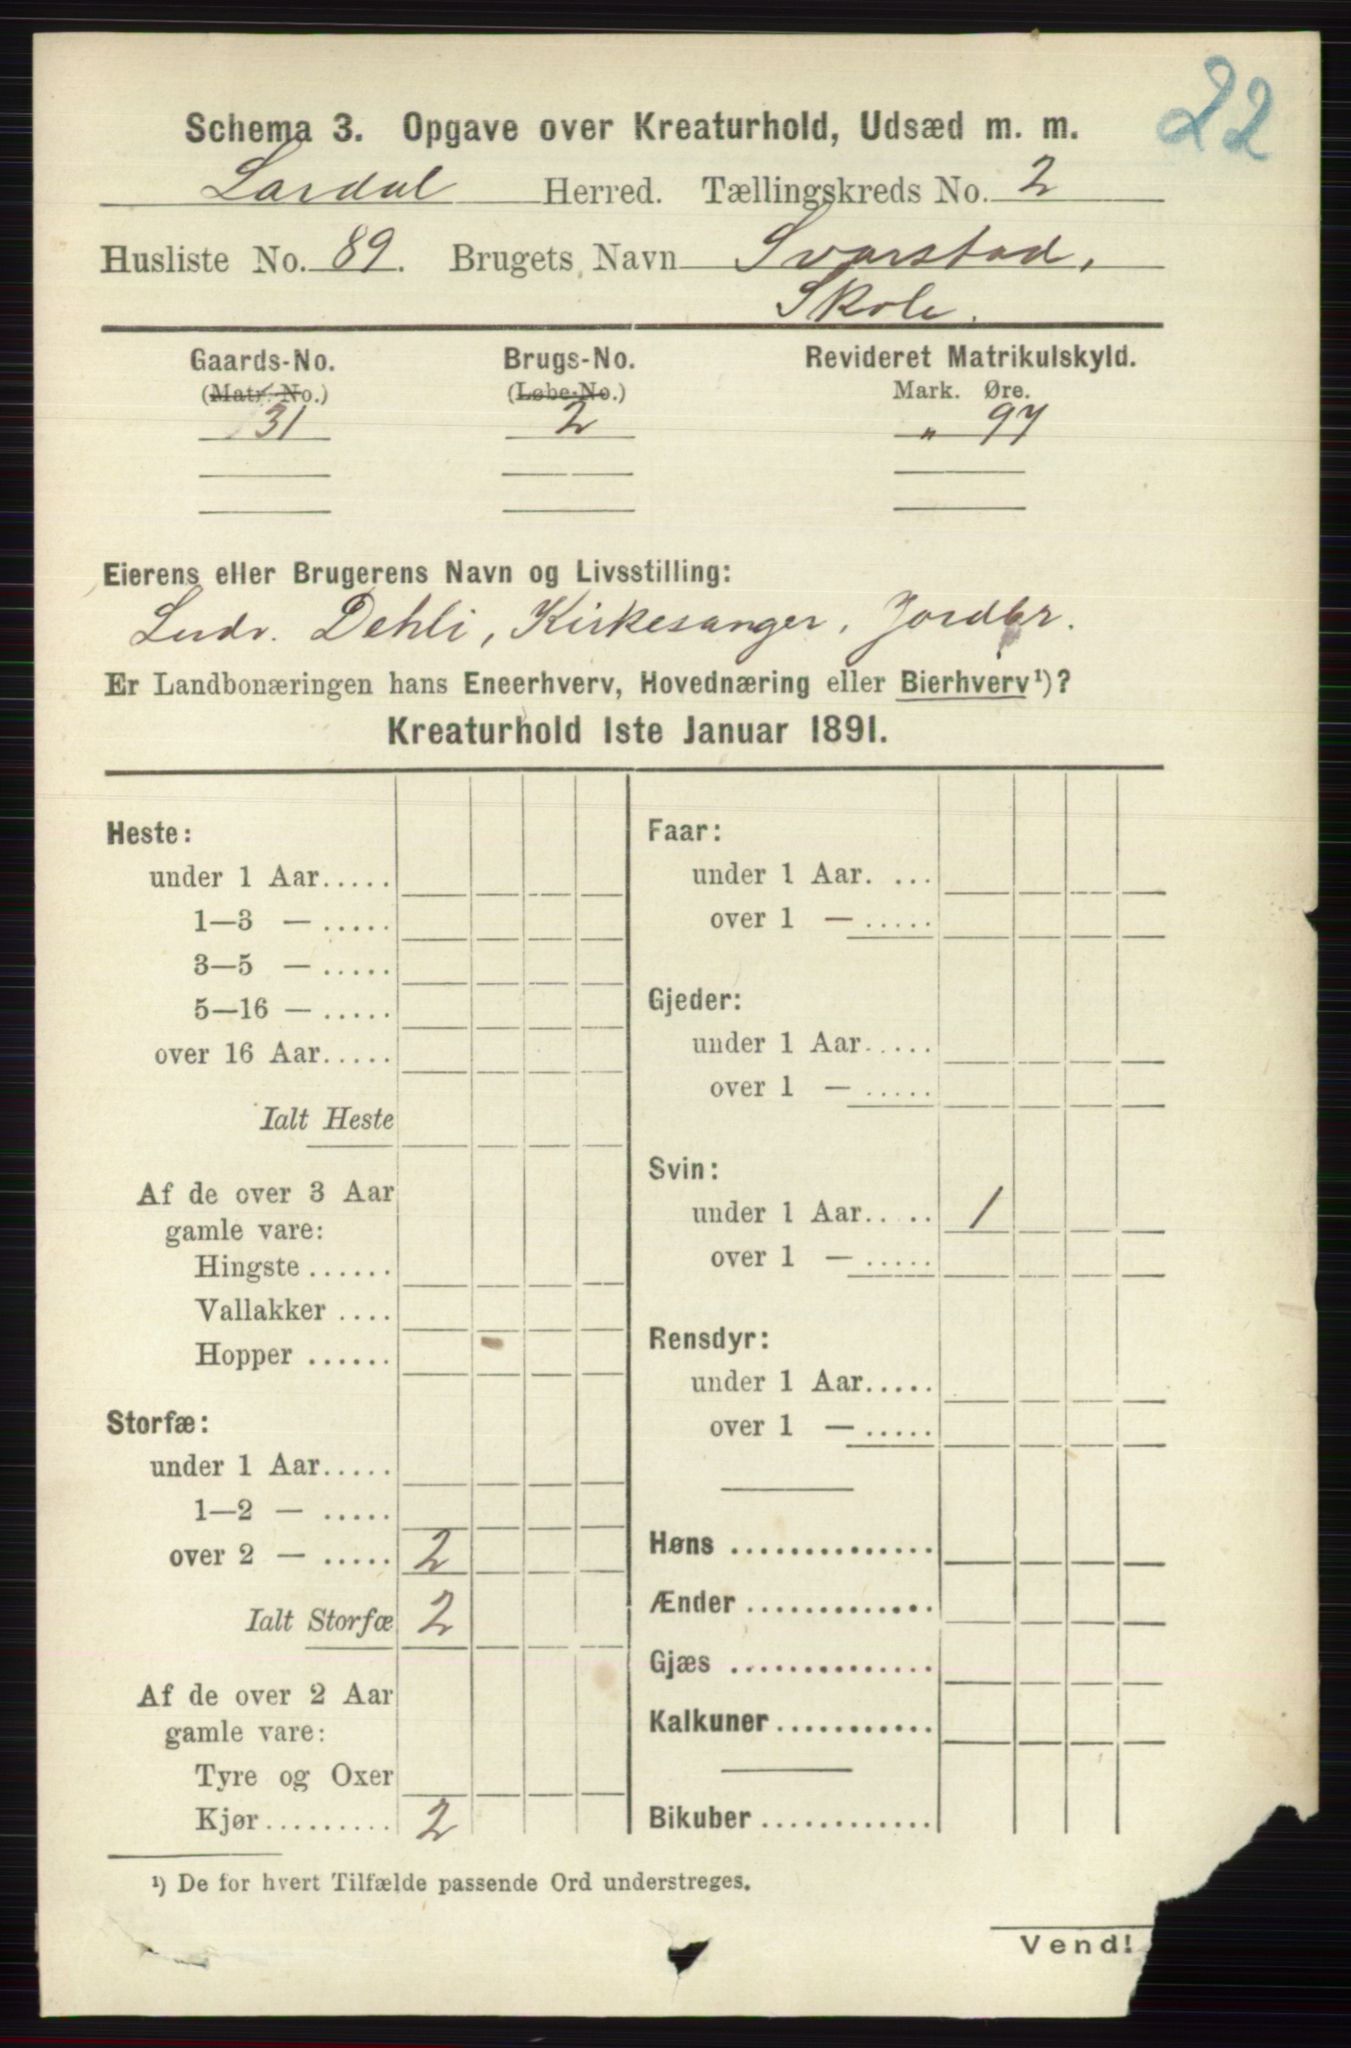 22
Schema 3. Opgave over Kreaturhold, Udsæd m. m.
Lardal Herred. Tællingskreds No. 2
Husliste No. 89. Brugets Navn Svarstad,
Skole.
Gaards-No. Brugs-No. Revideret Matrikulskyld.
(Matr. No.) (Løbe-No.) Mark. Øre.
31 2 " 97
Eierens eller Brugerens Navn og Livsstilling:
Ludv. Dehli, Kirkesanger, Jordbr.
Er Landbonæringen hans Eneerhverv, Hovednæring eller Bierhverv¹)?
Kreaturhold 1ste Januar 1891.
Heste:
under 1 Aar.....
1—3 — .....
3—5 — .....
5—16 — .....
over 16 Aar.....
Ialt Heste
Af de over 3 Aar
gamle vare:
Hingste ......
Vallakker ....
Hopper ......
Storfæ:
under 1 Aar.....
1—2 — .....
over 2 — ..... 2
Ialt Storfæ 2
Af de over 2 Aar
gamle vare:
Tyre og Oxer
Kjør......... 2
Faar:
under 1 Aar. ...
over 1 — .....
Gjeder:
under 1 Aar.....
over 1 — .....
Svin:
under 1 Aar..... 1
over 1 — .....
Rensdyr:
under 1 Aar.....
over 1 — .....
Høns ..............
Ænder .............
Gjæs ..............
Kalkuner...........
Bikuber ............
¹) De for hvert Tilfælde passende Ord understreges.
Vend!